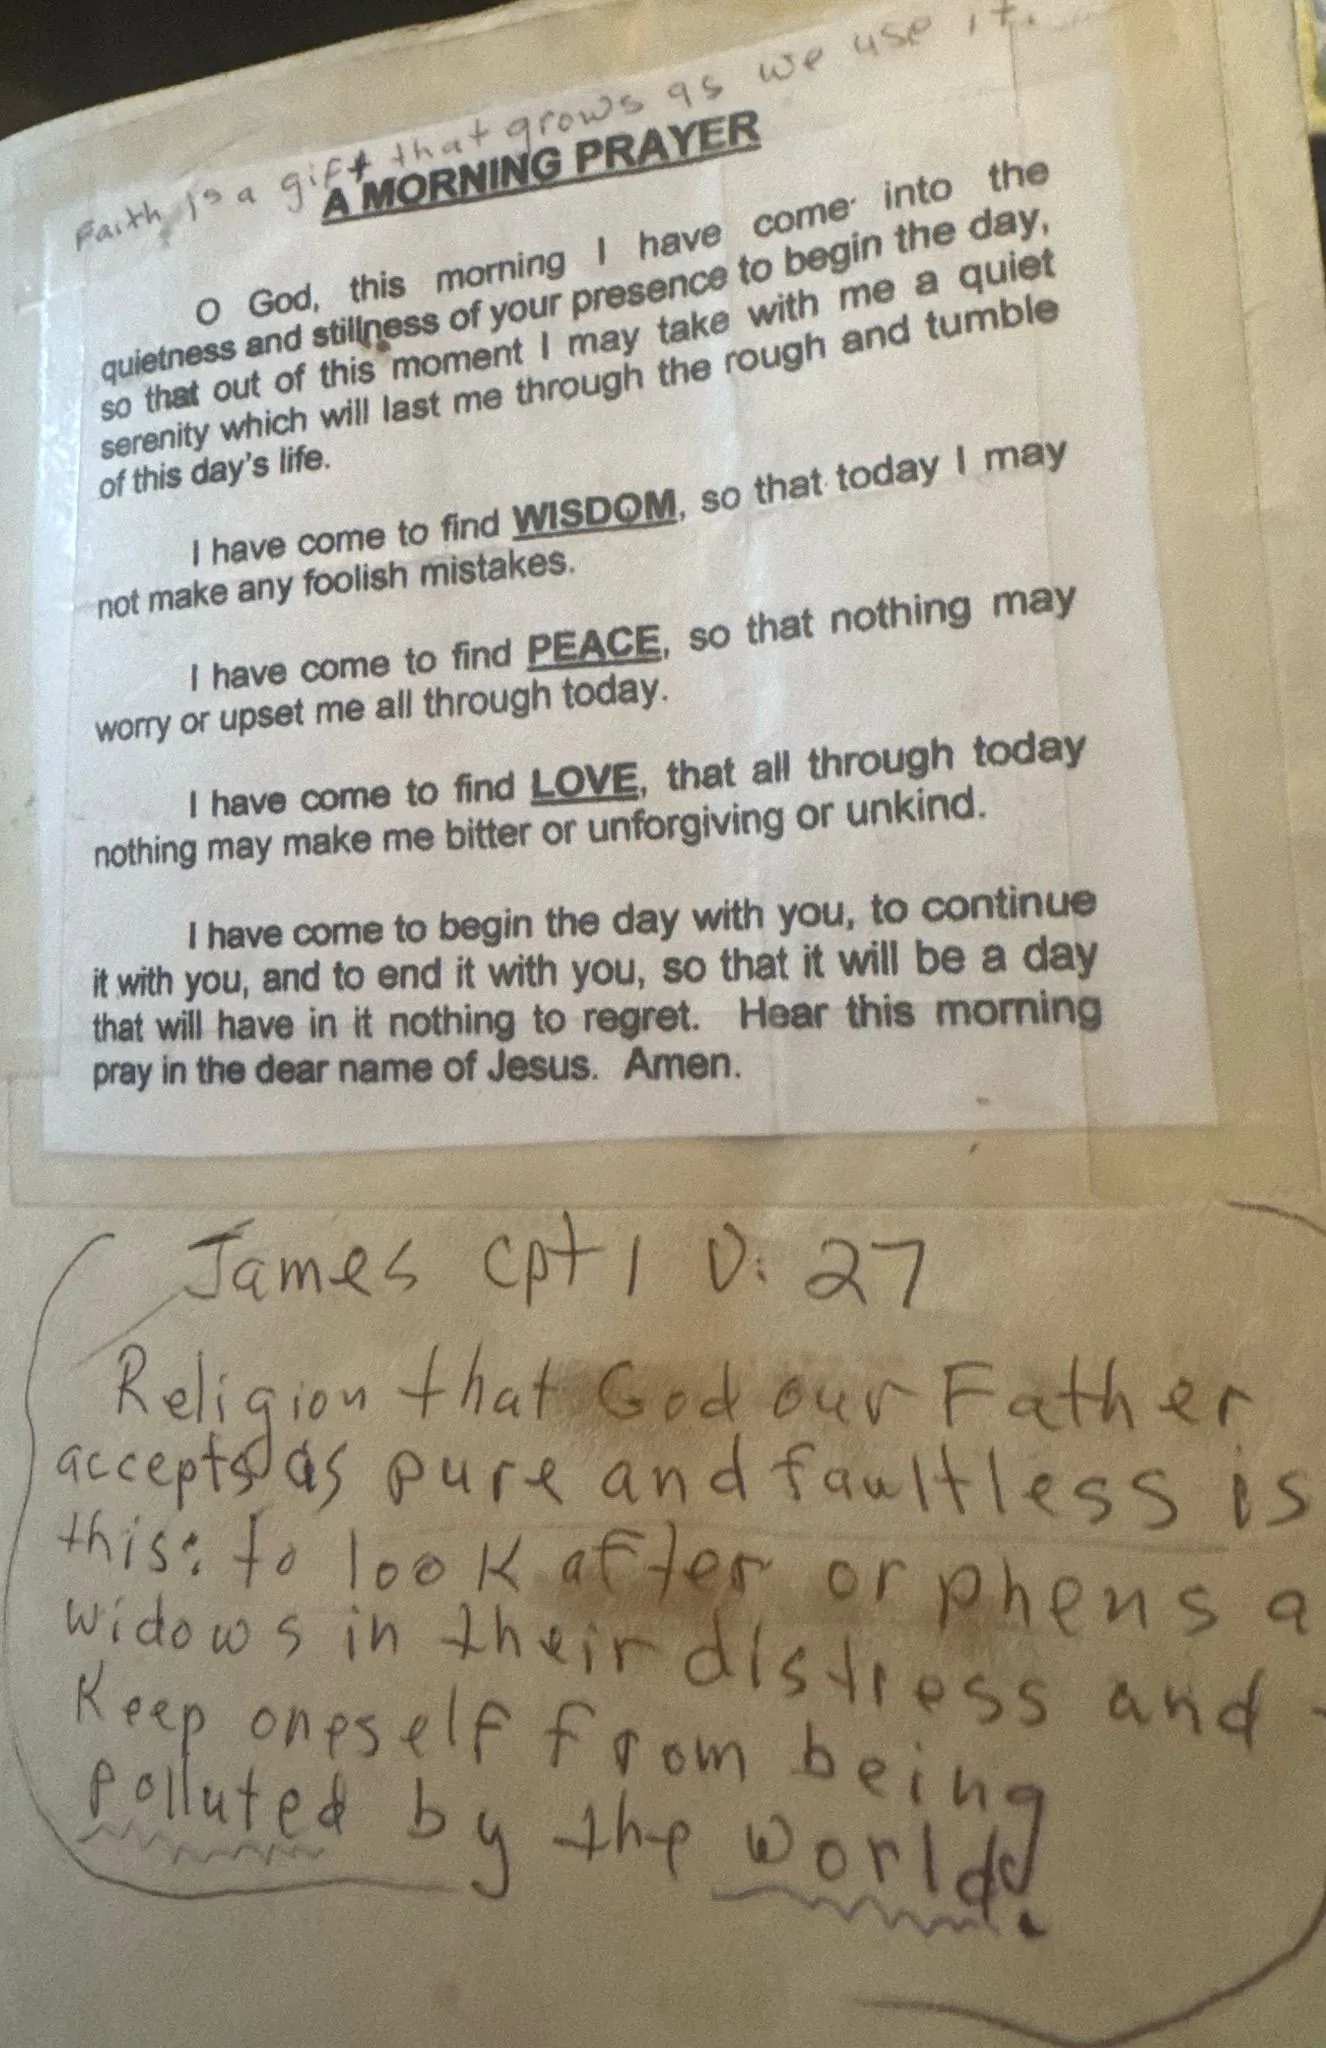 Faith is a gift that grows as we use it.
A MORNING PRAYER
O God, this morning I have come into the
quietness and stillness of your presence to begin the day,
so that out of this moment I may take with me a quiet
serenity which will last me through the rough and tumble
of this day's life.
I have come to find WISDOM, so that today I may
not make any foolish mistakes.
I have come to find PEACE, so that nothing may
worry or upset me all through today.
I have come to find LOVE, that all through today
nothing may make me bitter or unforgiving or unkind.
I have come to begin the day with you, to continue
it with you, and to end it with you, so that it will be a day
that will have in it nothing to regret. Hear this morning
pray in the dear name of Jesus. Amen.
James cpt 1 v: 27
Religion that God our Father
accepts as pure and faultless is
this: to look after orphens a
widows in their distress and
Keep oneself from being
polluted by the world.